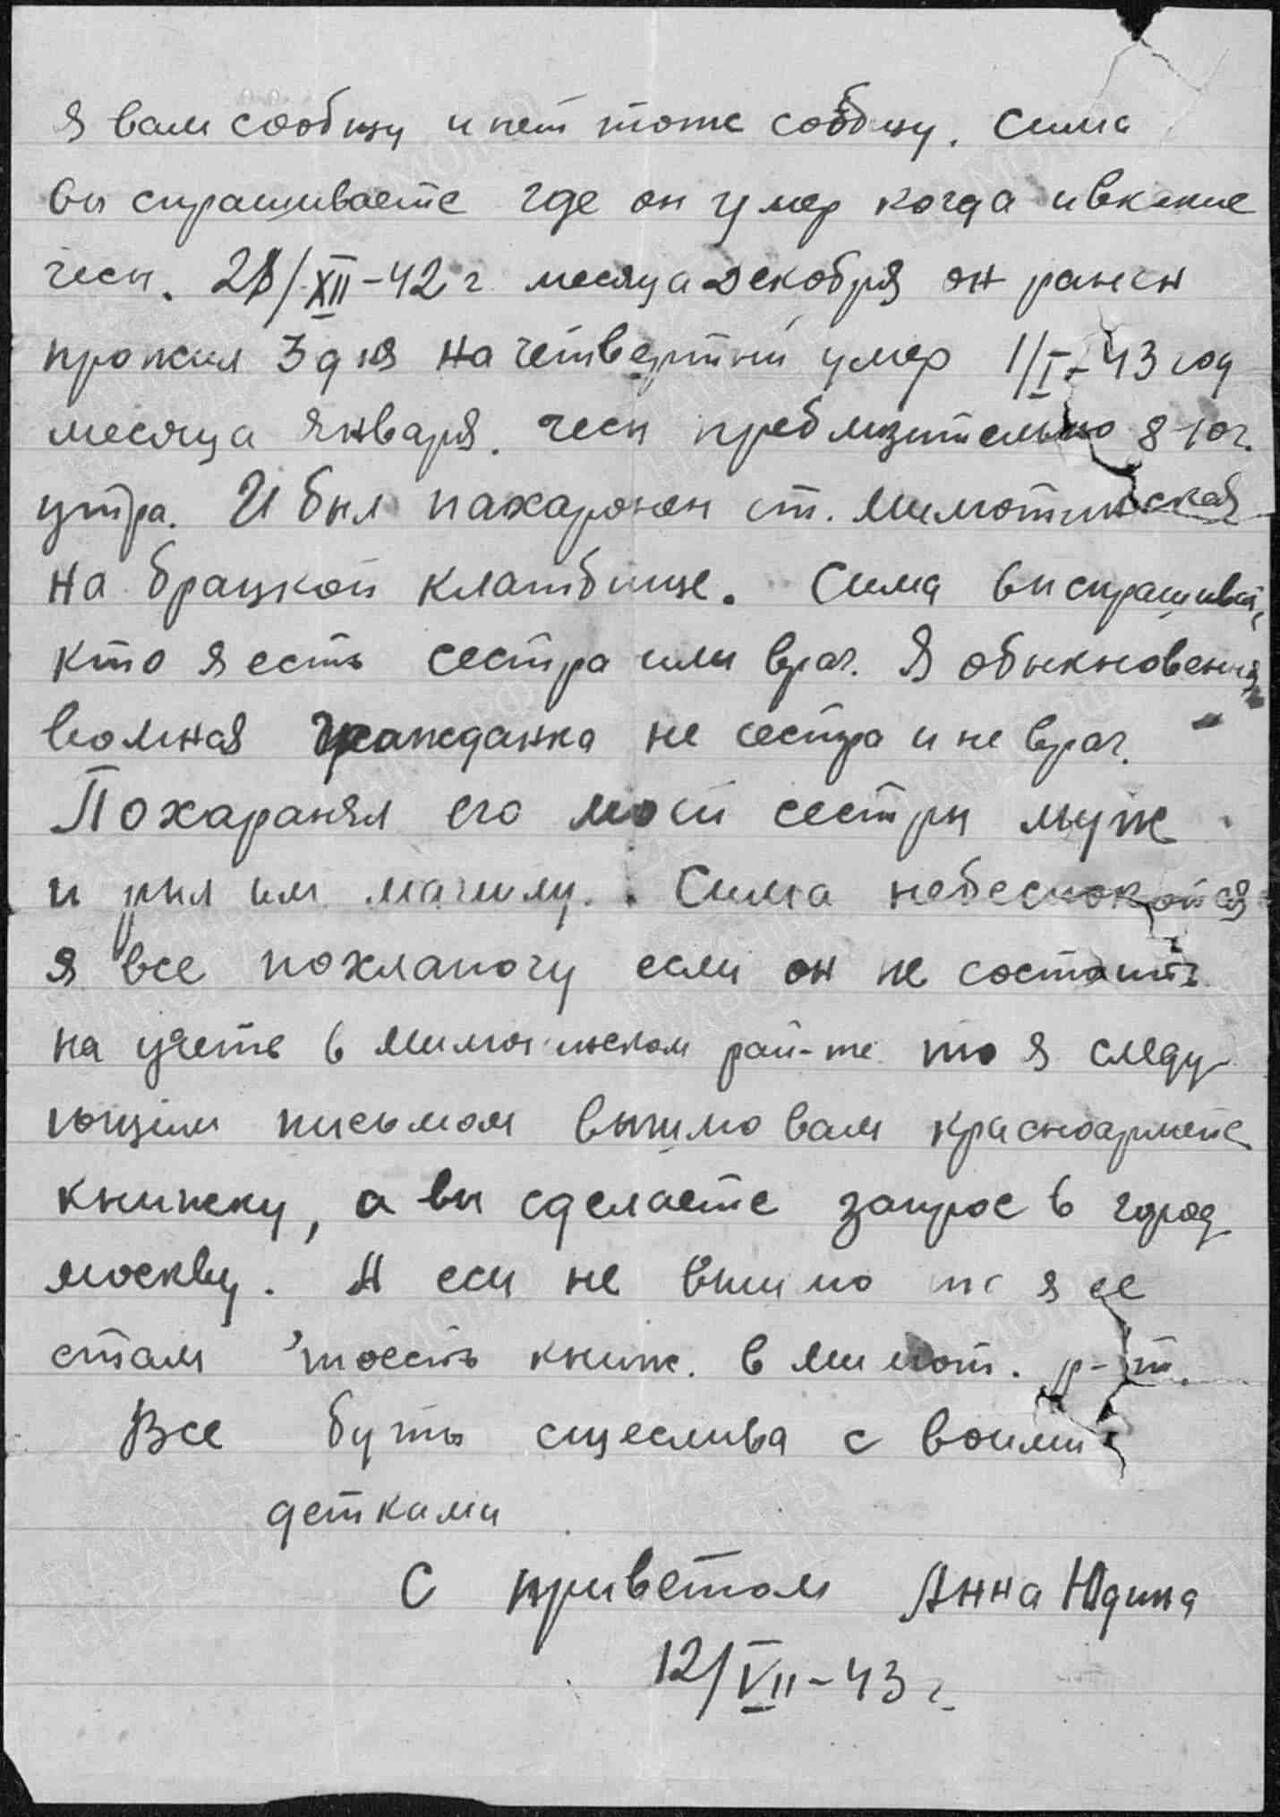 я вам сообщу и нет тоже сообщу. Сима
вы спрашиваете где он умер когда и вкакие
чесы. 28/XII-42 г месяца декобря он ранен
прожил 3 дня на четвертый умер 1/I-43 год
месяца января. чесы преблизительно 8-10 ч.
утра. И был пахаронен ст. Милютинской
на брацкой клатбище. Сима вы спрашивает,
кто я есть сестра или врач. Я обыкновенная
волная гражданка не сестра и не врач.
Похаранял его моей сестры муж
и рыл им магилу. Сима небеспокойся
я все похлапочу если он не состаить
на учете в Милютинском рай-те то я следу
ющим письмом вышлю вам красноармейс
книжку, а вы сделаете запрос в город
москву. А еси не вышлю то я ее
стам тоесть книж. в милют. р-т.
Все буть сщеслива с воими
детками
С приветом Анна Юдина
12/VII-43 г
ПАМЯТЬ НАРОДА
ЦАМО РФ